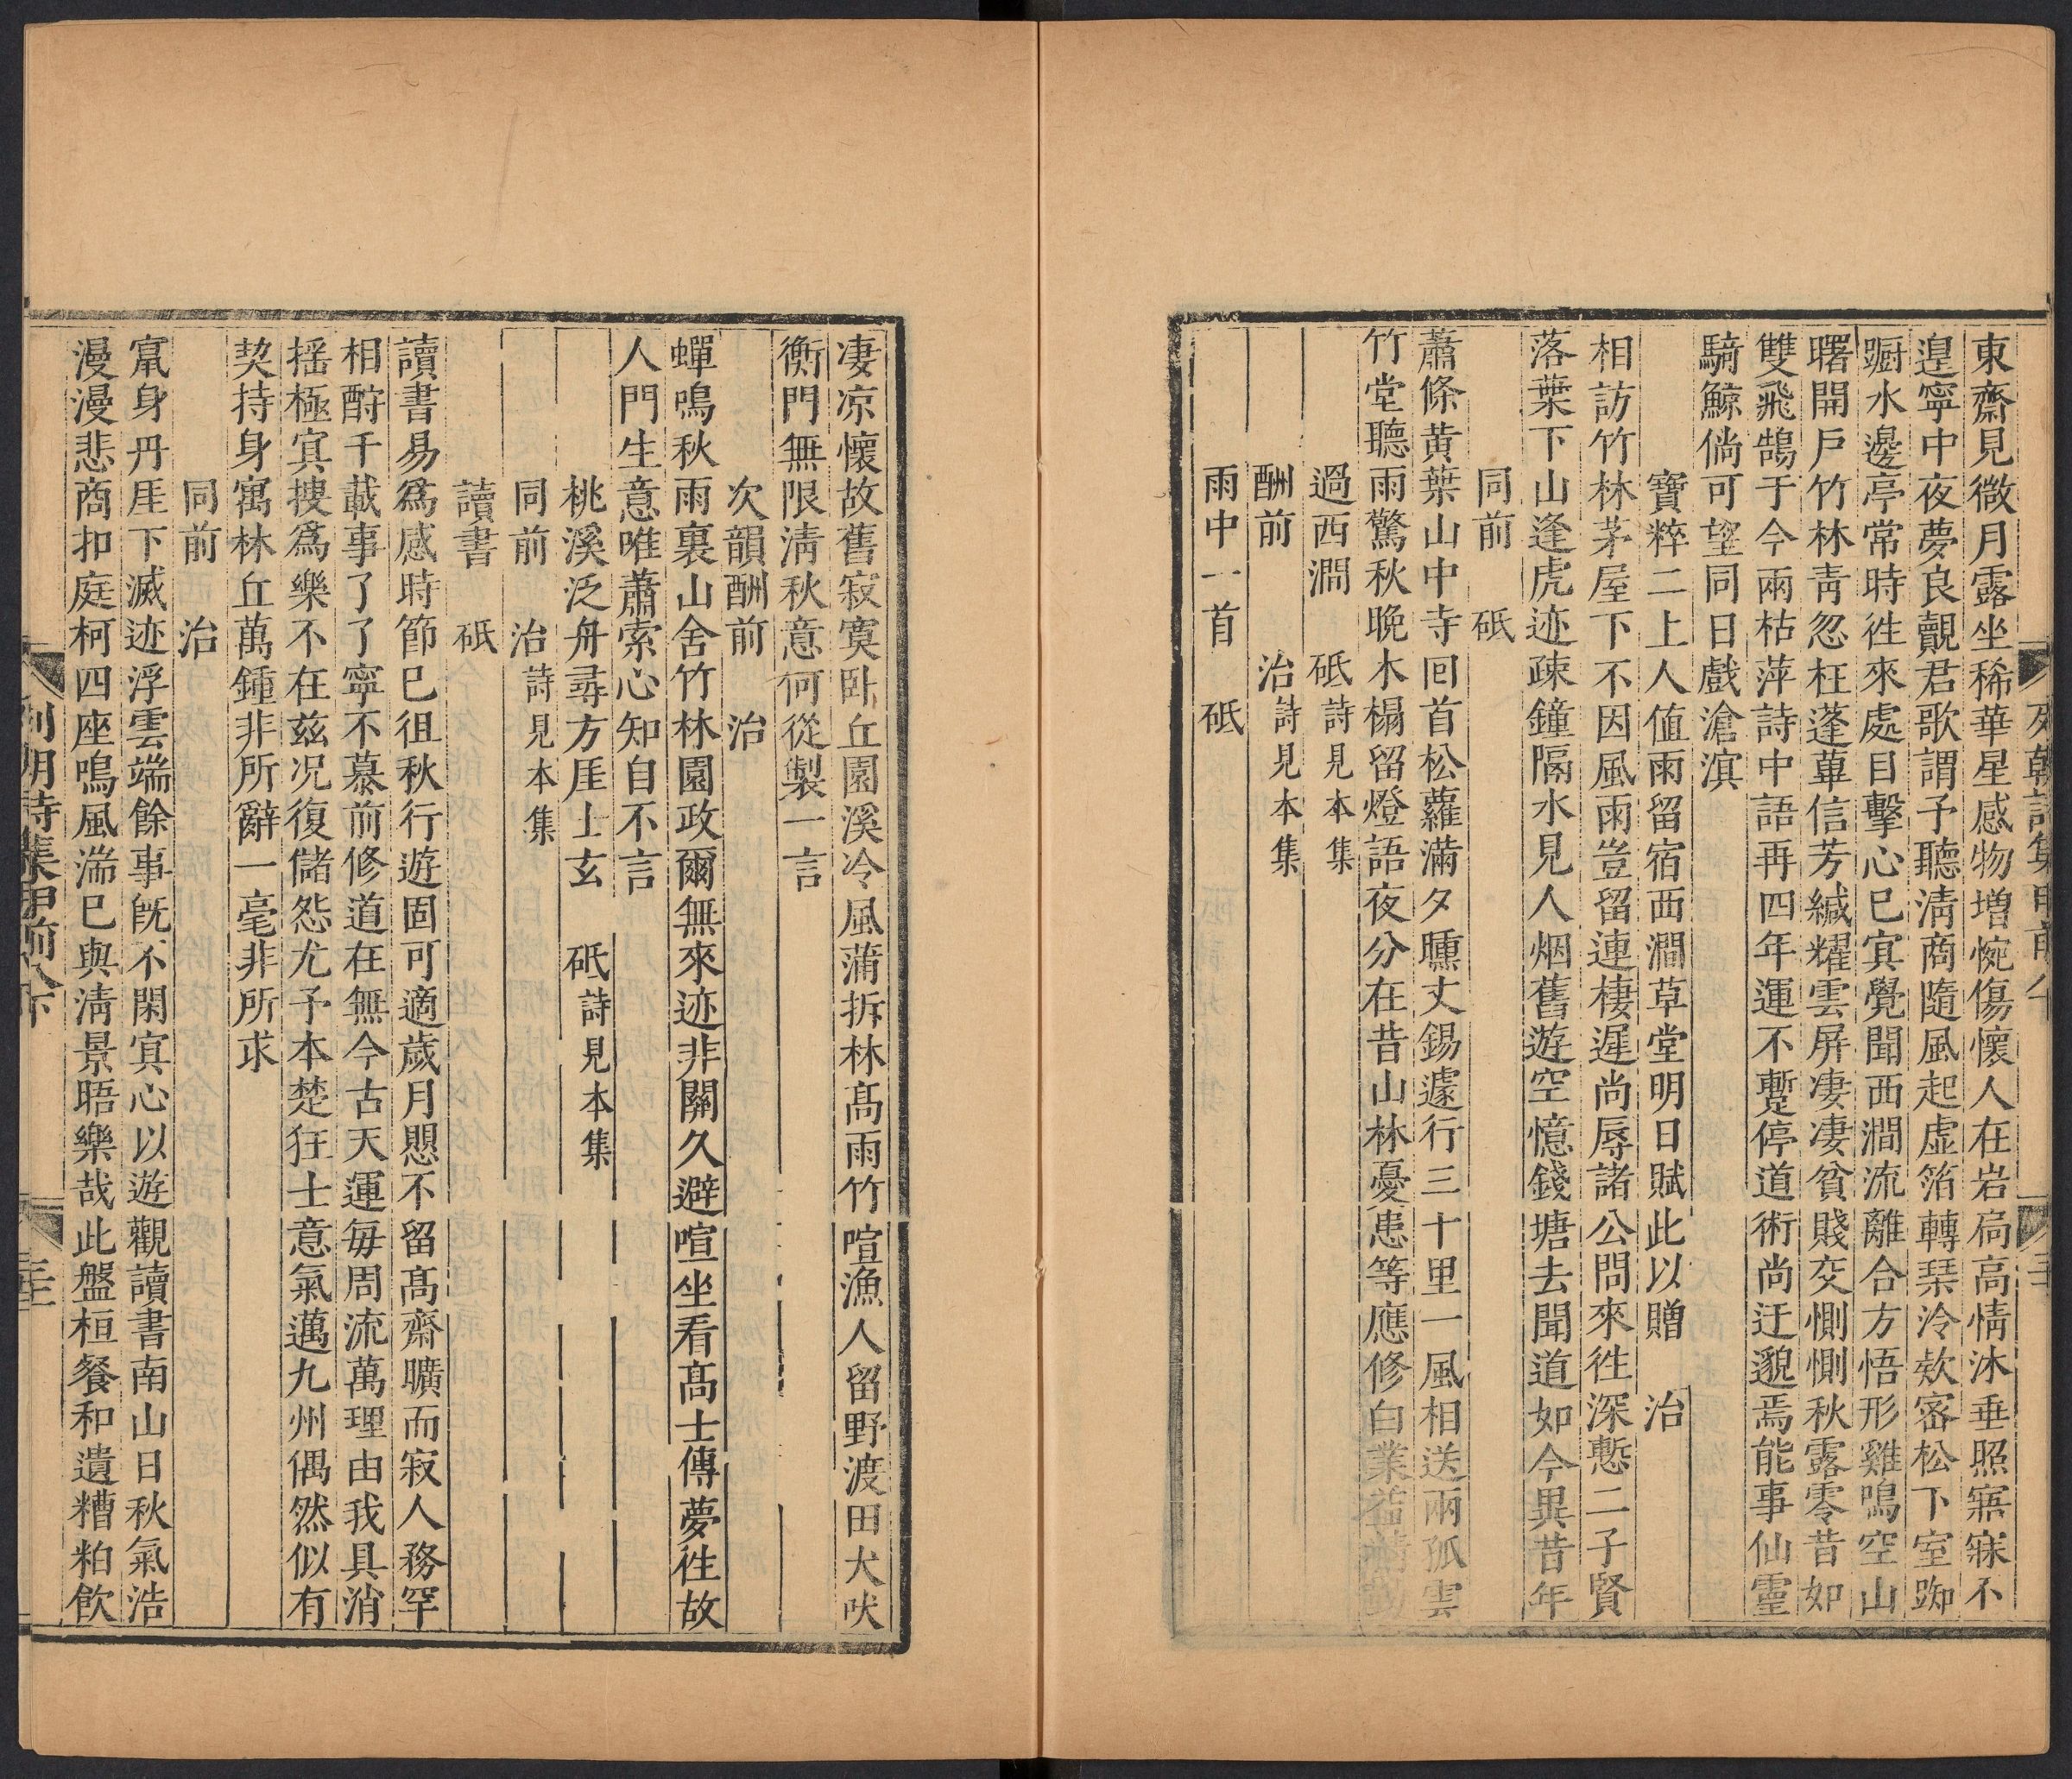 東齋見微月露坐稀華星感物増惋傷懷人在岩扃高情沐垂照寤寐不
遑寧中夜夢良覿君歌謂予聽淸商隨風起虛箔轉琹泠欸密松下室踟
蹰水邊亭常時徃來處目擊心已㝠覺聞西澗流離合方悟形雞鳴空山
曙開戶竹林靑忽枉蓬蓽信芳緘耀雲屏凄凄貧賤交惻惻秋露零昔如
雙飛鵠于今兩枯萍詩中語再四年運不蹔停道術尚迂邈焉能事仙靈
騎鯨倘可望同日戲滄溟
寶粹二上人値雨留宿西澗草堂明日賦此以贈　治
相訪竹林茅屋下不因風雨豈留連棲遲尚辱諸公問來徃深慙二子賢
落葉下山逢虎迹疎鐘隔水見人烟舊遊空憶錢塘去聞道如今異昔年
同前　砥
蕭條黄葉山中寺囘首松蘿滿夕曛丈錫遽行三十里一風相送兩孤雲
竹堂聽雨驚秋晚木榻留燈語夜分在昔山林憂患等應修白業
過西澗　砥詩見本集
酬前　治詩見本集
雨中一首　砥
凄凉懷故舊寂寞卧丘園溪冷風蒲拆林髙雨竹喧漁人留野渡田犬吠
衡門無限淸秋意何從製一言
次韻酬前　治
蟬鳴秋雨裏山舍竹林園政爾無來迹非關久避喧坐看髙士傳夢徃故
人門生意唯蕭索心知自不言
桃溪泛舟尋方厓上玄　砥詩見本集
同前　治詩見本集
讀書　砥
讀書易爲感時節巳徂秋行遊固可適歲月愳不留髙齋曠而寂人務罕
相酧千載事了了寧不慕前修道在無今古天運毎周流萬理由我具消
揺極㝠捜爲樂不在兹况復儲怨尤予本楚狂士意氣邁九州偶然似有
契持身寓林丘萬鍾非所辭一毫非所求
同前　治
竄身丹厓下滅迹浮雲端餘事旣不閑㝠心以遊觀讀書南山日秋氣浩
漫漫悲商扣庭柯四座鳴風湍巳與淸景晤樂哉此盤桓餐和遺糟粕飮
列朝詩集甲前八下